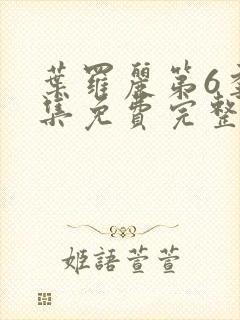 葉羅麗第6季
集免費完整
姬語萱萱